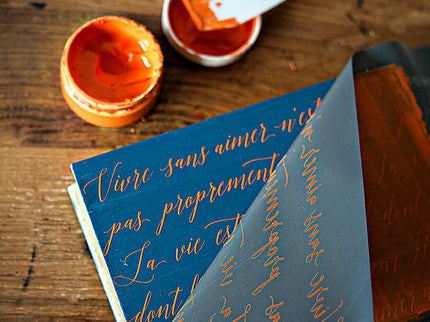 Vivre sans aimer n'est
pas proprement
La vie est
dont